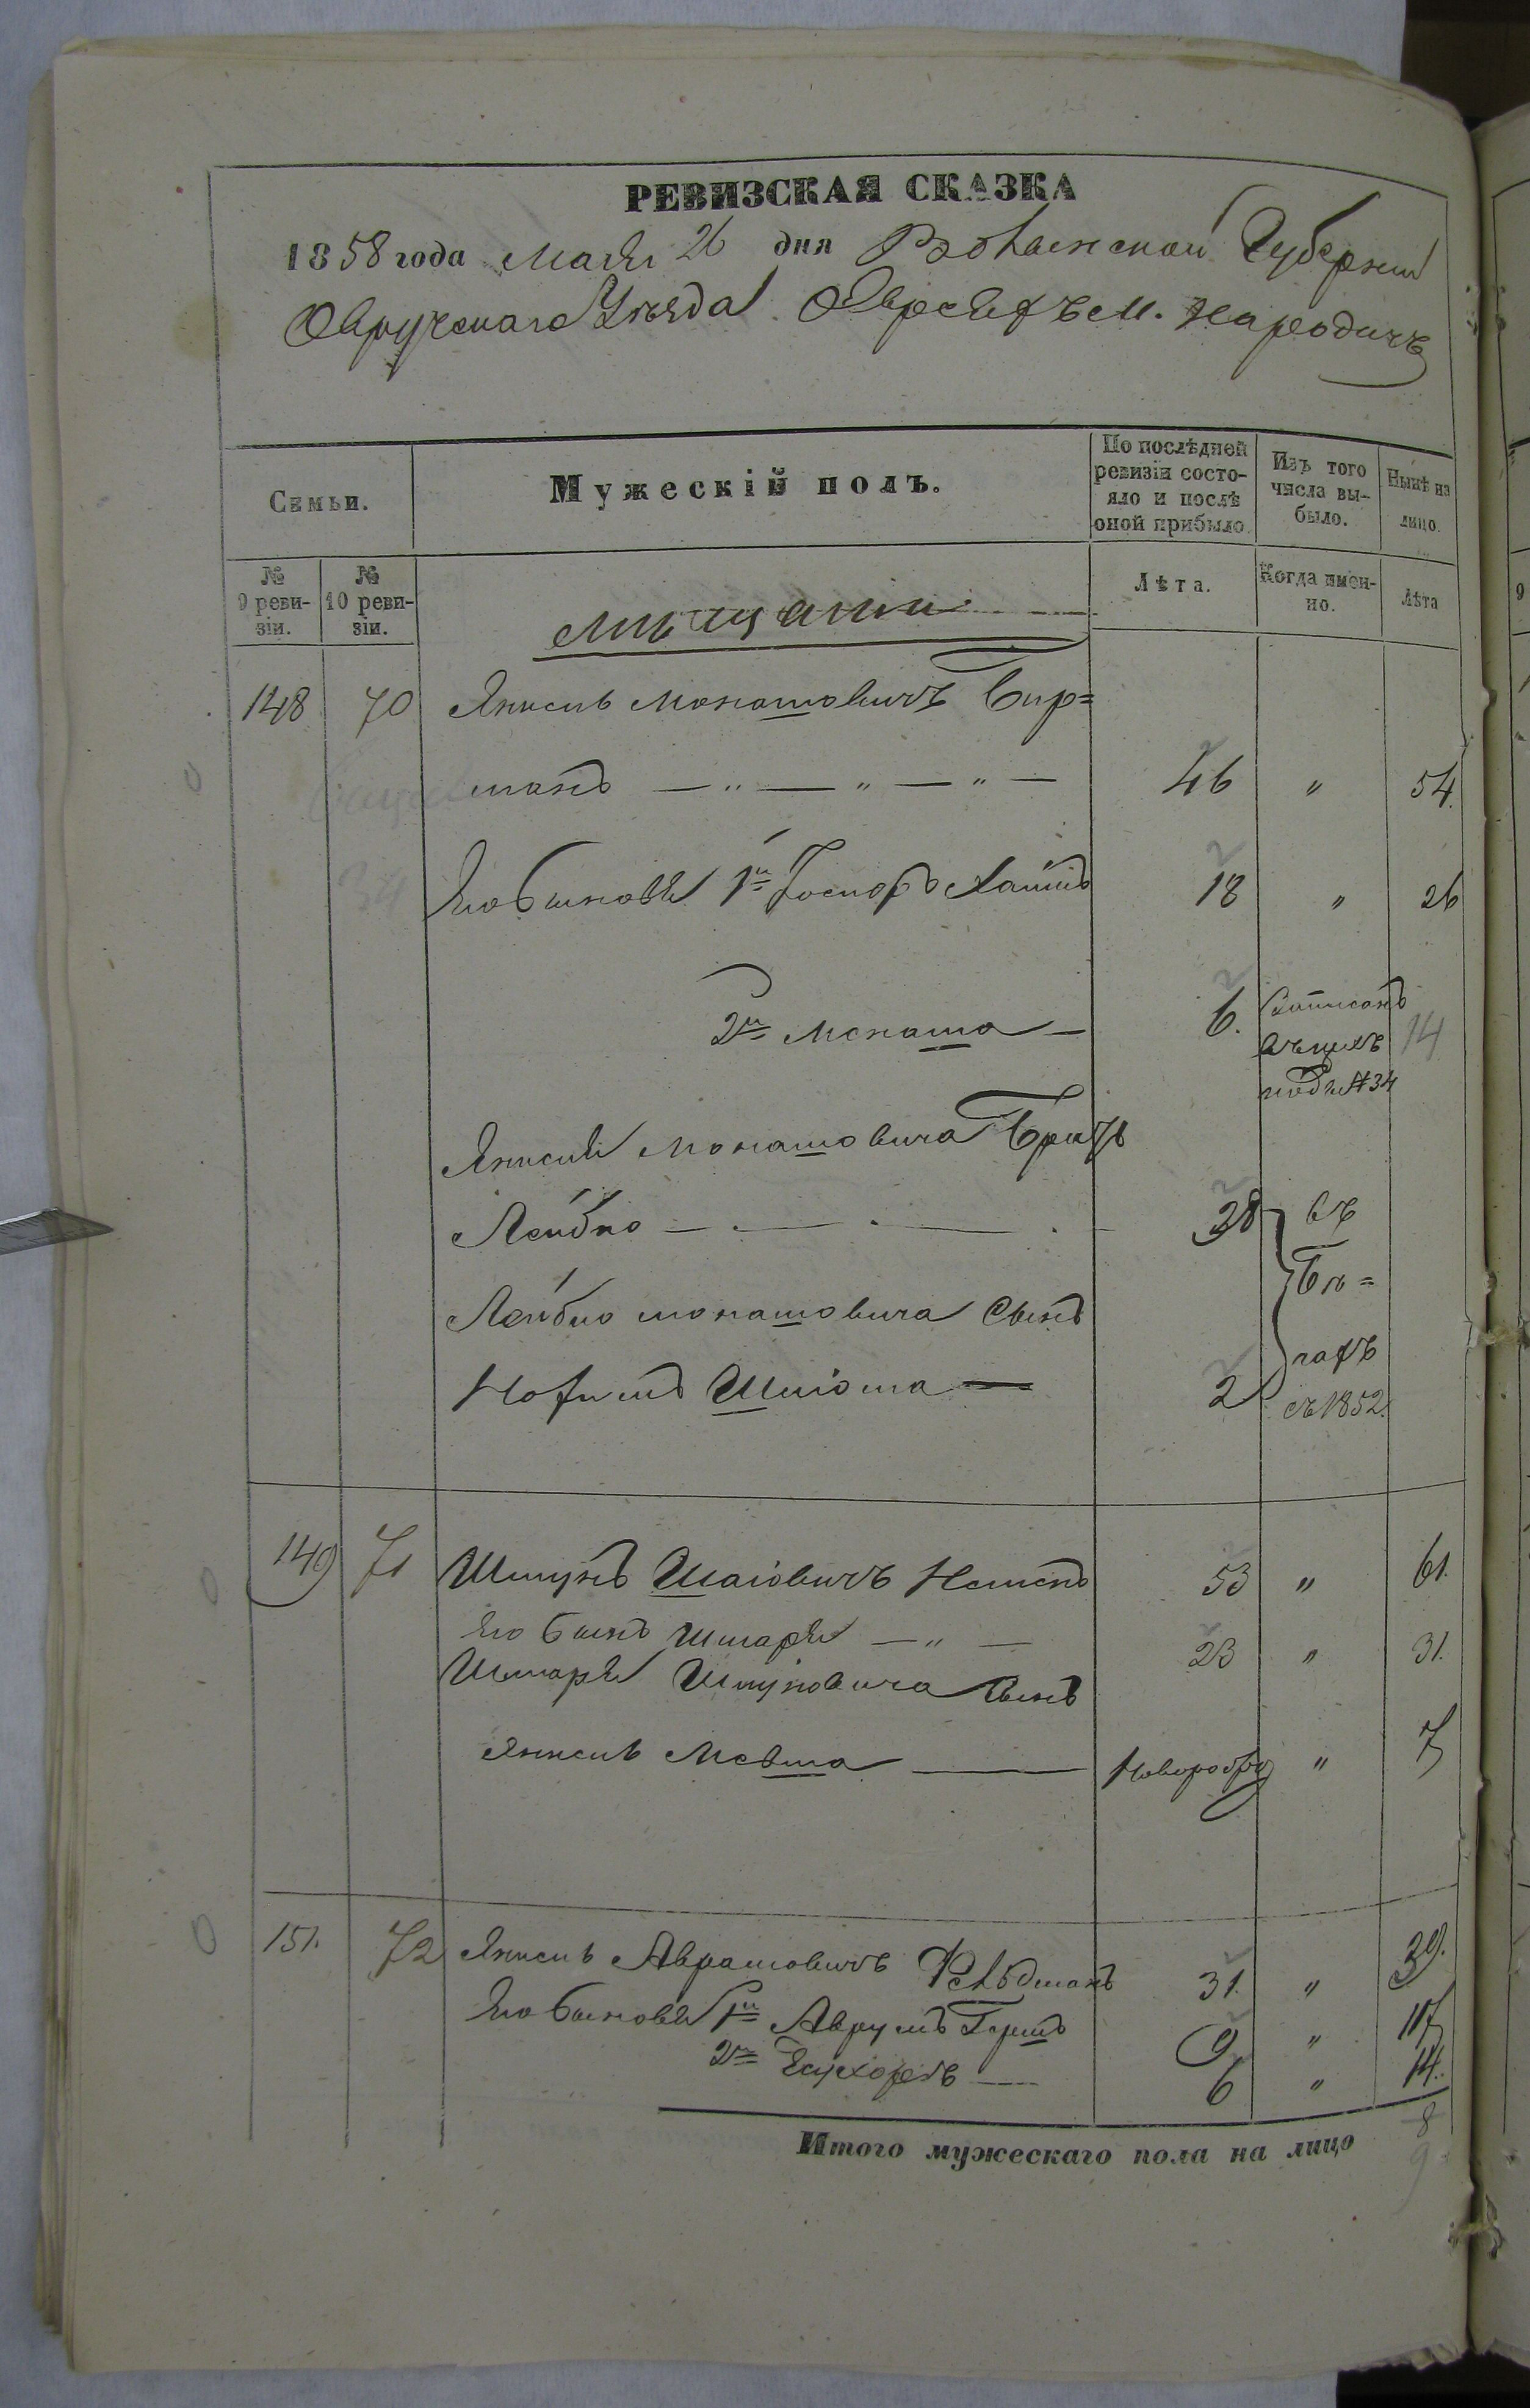 РЕВИЗСКАЯ СКАЗКА
1858 года Маія 26 дня Волынской Губерніи
Овручскаго Уѣзда Евреяхъ м. Народичъ
Семьи.
Мужескій полъ.
По послѣдней ревизіи состояло и послѣ оной прибыло.
Изъ того числа выбыло.
Нынѣ на лицо.
№ 9 ревизіи.
№ 10 ревизіи.
Лѣта.
Когда именно.
Лѣта
Мѣщании
148 70 Янкель Моношовичъ Бир=
манъ — " — " — " — 46 " 54.
Его Сыновья 1й Хаимъ 18 " 26
2й Монаша — 6. Записанъ 14
въ цехъ
подъ № 34
Янкеля Моношовича Братъ
Лейбко — . — . 28 въ
Бѣ=
Лейбко Моношовича Сынъ
гахъ
Шліома — 2 съ 1852.
149 71 Шмунъ Шаіовичъ 53 " 61.
Его Сынъ Шмаря — " — 23 " 31.
Шмаря Шмуновича Сынъ
Янкель Мовша — Новорожд " 7
151. 72 Янкель Аврамовичъ Фельдманъ 31. " 39.
Его Сыновья 1й Аврумъ Гершъ 9 " 17
2й — 6 " 14.
Итого мужескаго пола на лицо 8
9